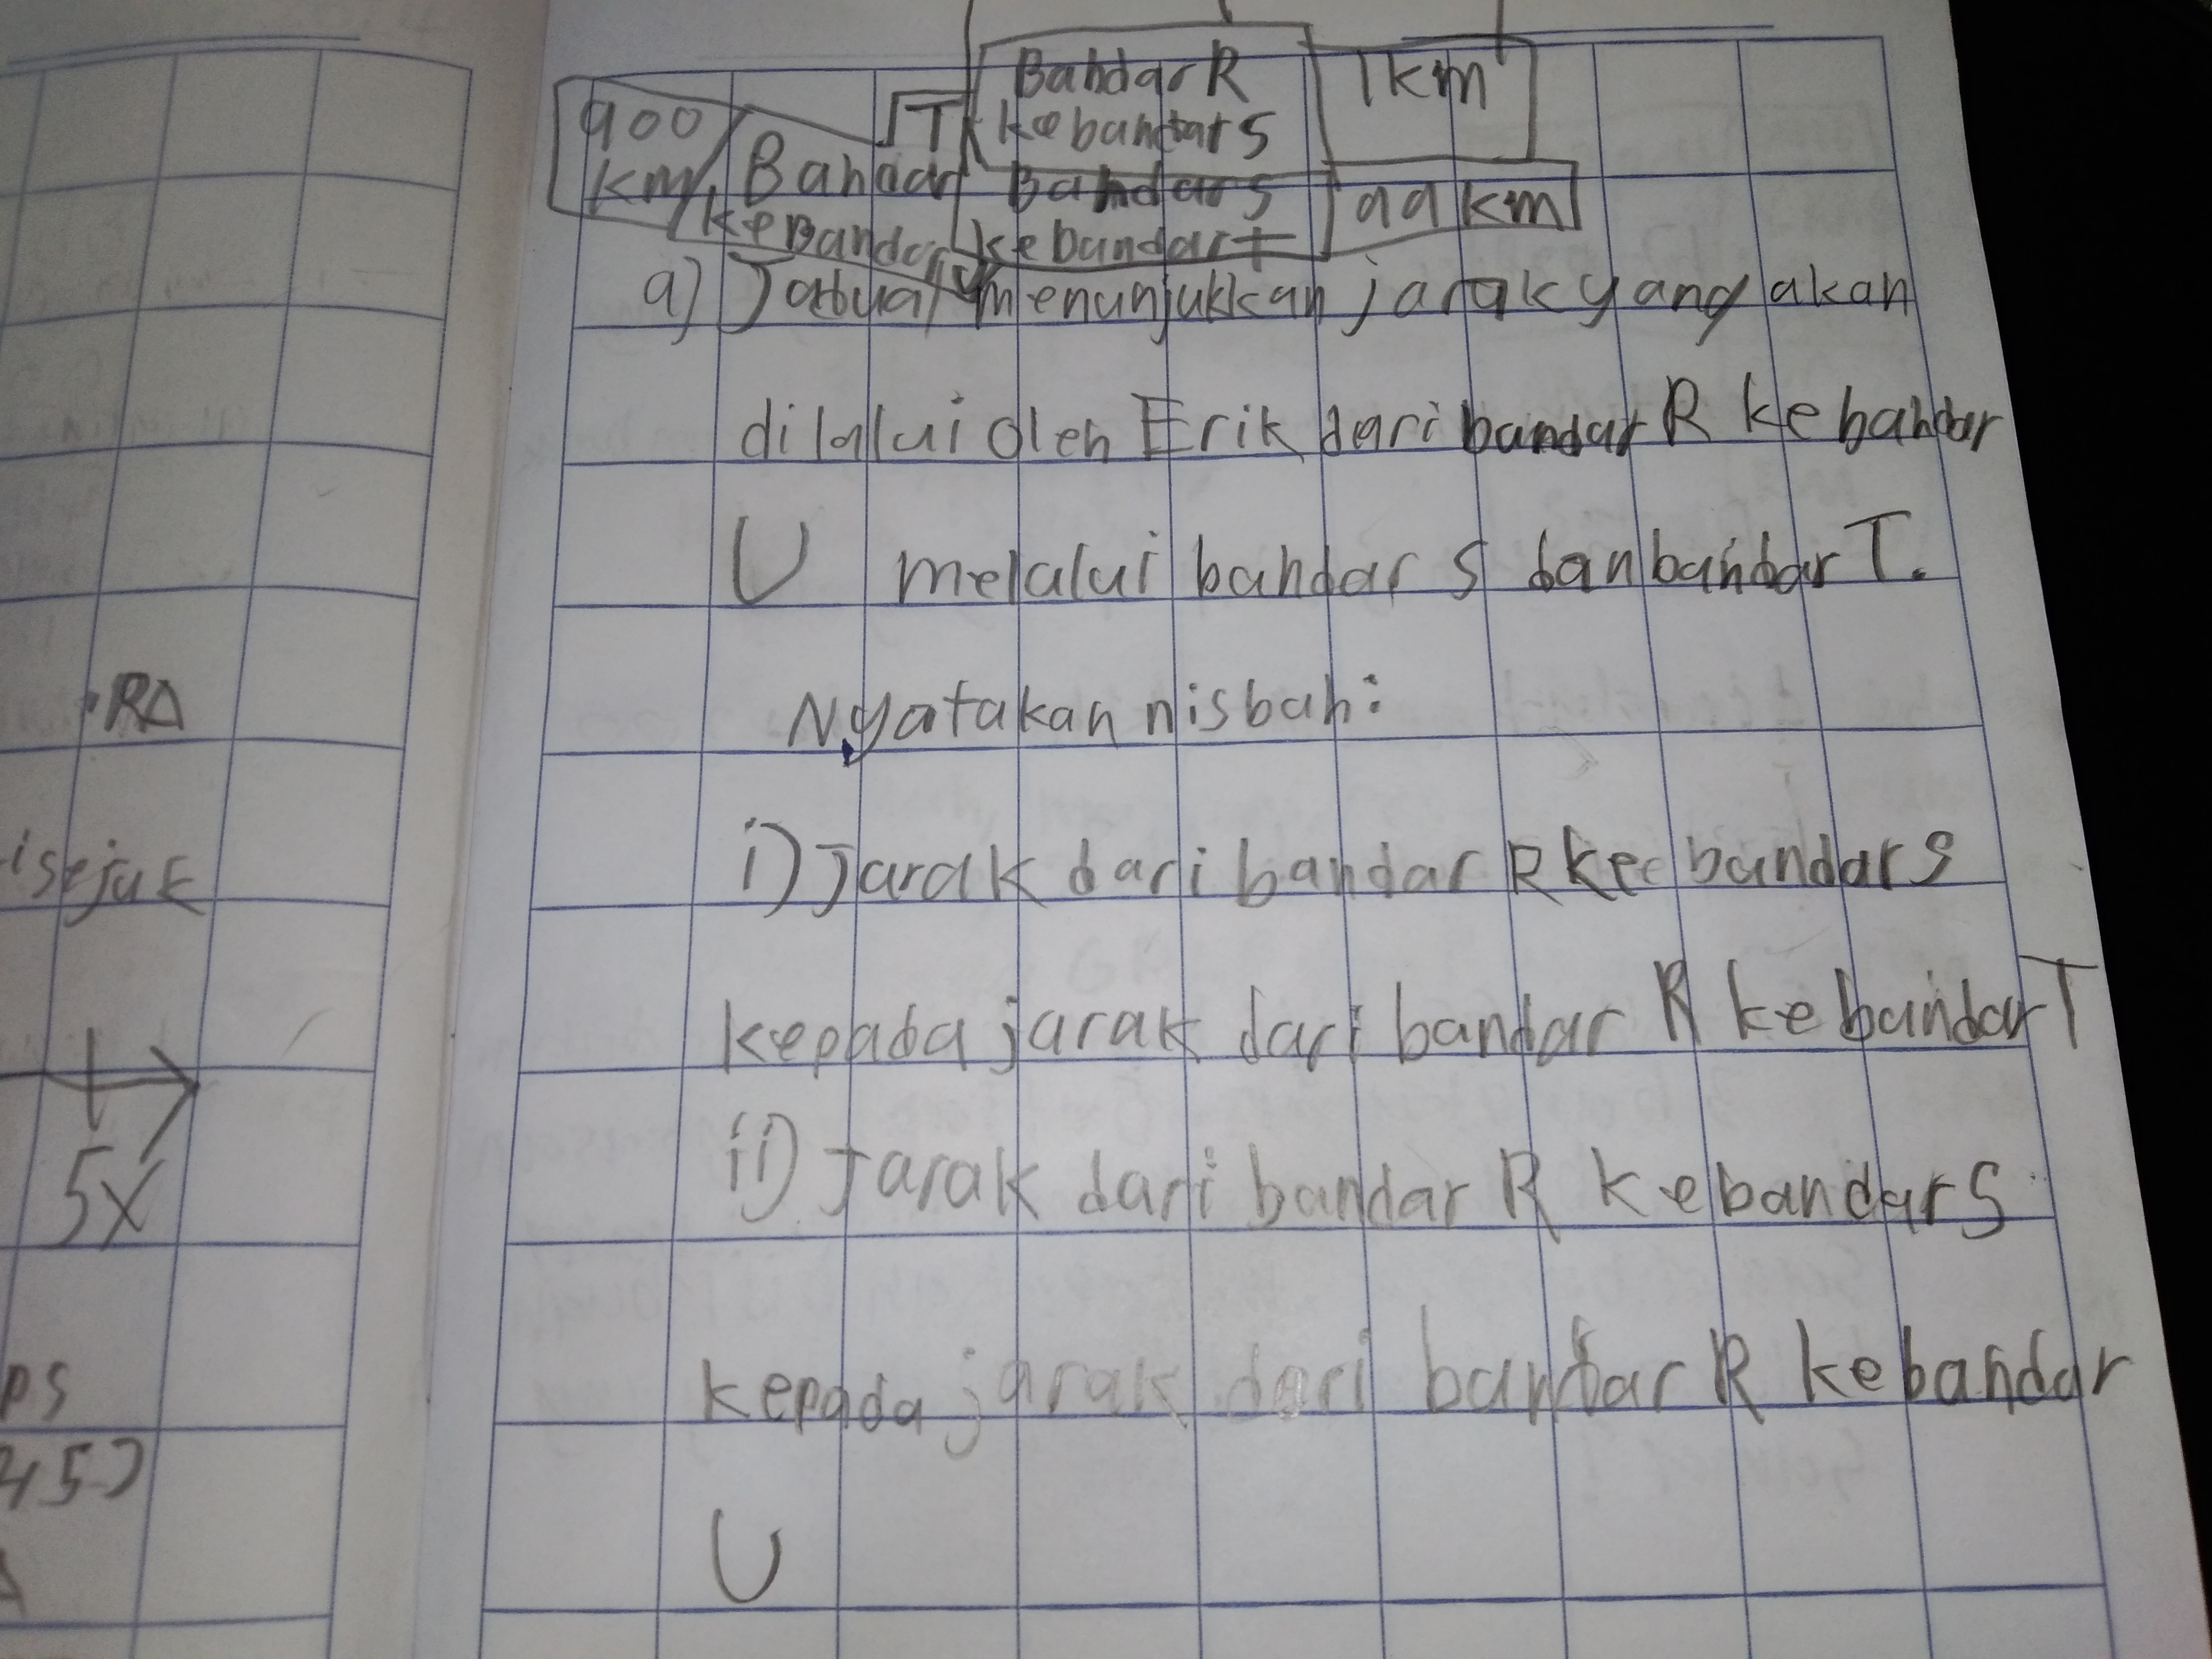 Bandar R
ke bandar S
1 km
900
km
Bandar T
ke Bandar U
Bandar S
ke bandar t
99 km
a) Jadual menunjukkan jarak yang akan
dilalui oleh Erik dari bandar R ke bandar
U melalui bandar S dan bandar T.
Nyatakan nisbah:
i) Jarak dari bandar R ke bandar S
kepada jarak dari bandar R ke bandar T
ii) Jarak dari bandar R ke bandar S
kepada jarak dari bandar R ke bandar
U
RA
isejuk
5X
ps
45